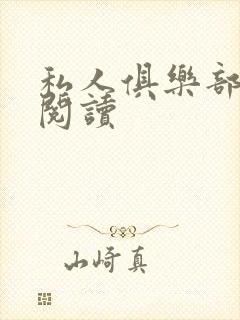 私人俱樂部
閱讀
山崎真